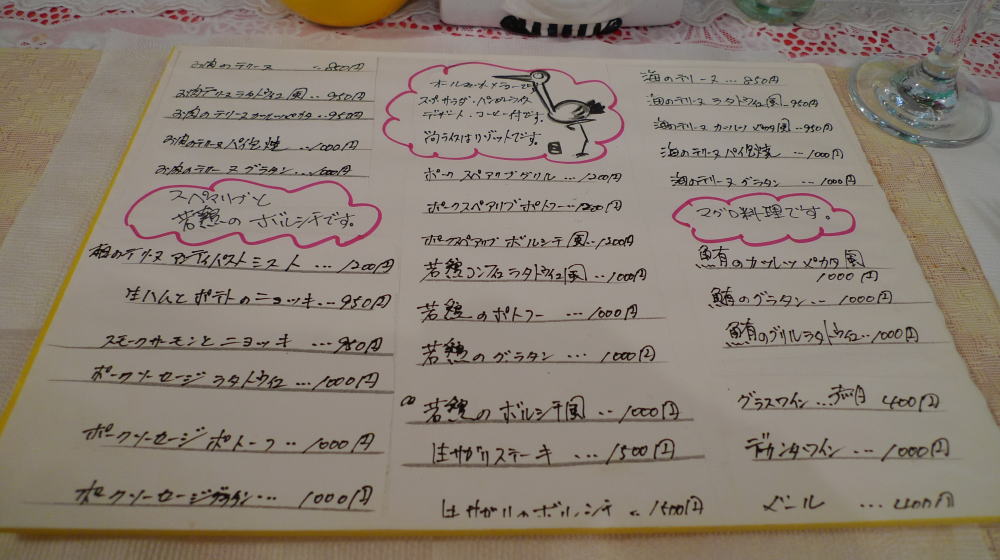 お肉のテリーヌ ... 850円
お肉テリーヌ ラタトゥイユ風 ... 950円
お肉のテリーヌ ... 950円
お肉のテリーヌ パイ包焼 ... 1000円
お肉のテリーヌ グラタン ... 1000円
スペアリブと
若鶏のボルシチです。
のテリーヌ アンティパストミスト ... 1200円
生ハムとポテトのニョッキ ... 950円
スモークサーモンとニョッキ ... 950円
ポークソーセージ ラタトゥイユ ... 1000円
ポークソーセージ ポトーフ ... 1000円
ポークソーセージグラタン ... 1000円
スープ サラダ・パン or ライス
デザート・コーヒー付です。
尚ライスはリゾットです。
ポーク スペアリブグリル ... 1200円
ポークスペアリブ ポトフー ... 1200円
ポークスペアリブ ボルシチ風 ... 1200円
若鶏コンフィラタトゥイユ風 ... 1000円
若鶏のポトフー ... 1000円
若鶏のグラタン ... 1000円
若鶏のボルシチ風 ... 1000円
牛サガリステーキ ... 1500円
牛サガリのボルシチ ... 1500円
海のテリーヌ ... 850円
海のテリーヌ ラタトゥイユ風 ... 950円
海のテリーヌ カツレツ ピカタ風 ... 950円
海のテリーヌ パイ包焼 ... 1000円
海のテリーヌ グラタン ... 1000円
マグロ料理です。
鮪のカツレツ ピカタ風
1000円
鮪のグラタン ... 1000円
鮪のグリルラタトゥイユ ... 1000円
グラスワイン ... 赤白 400円
デカンタワイン ... 1000円
ビール ... 400円